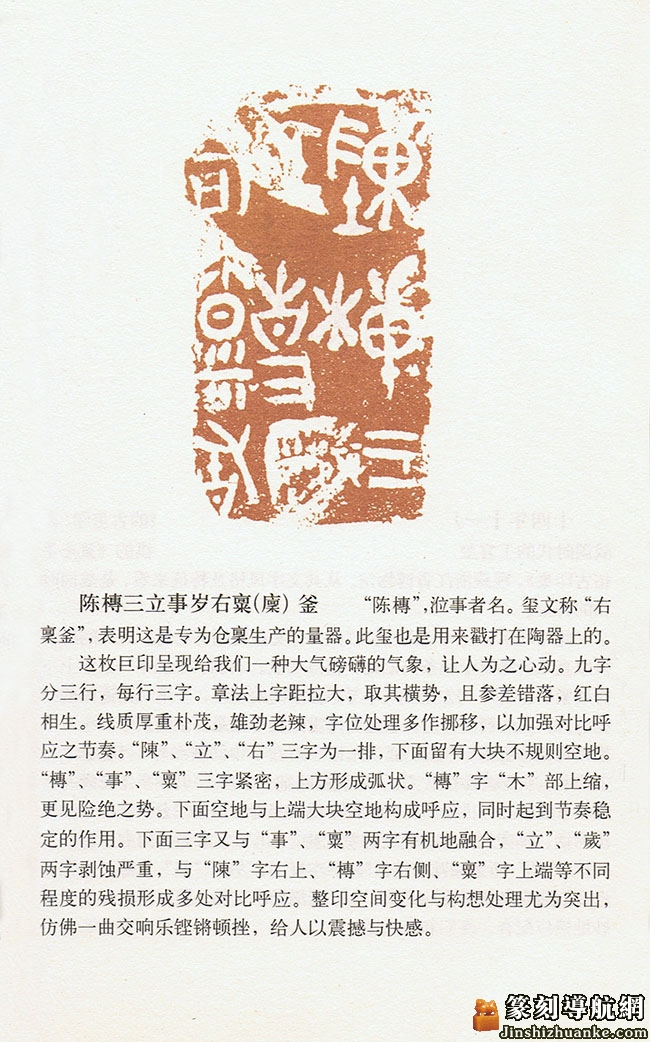 陈榑三立事岁右稟(廪)釜 “陈榑”,涖事者名。玺文称“右
稟釜”,表明这是专为仓稟生产的量器。此玺也是用来戳打在陶器上的。
这枚巨印呈现给我们一种大气磅礴的气象,让人为之心动。九字
分三行,每行三字。章法上字距拉大,取其横势,且参差错落,红白
相生。线质厚重朴茂,雄劲老辣,字位处理多作挪移,以加强对比呼
应之节奏。“陳”、“立”、“右”三字为一排,下面留有大块不规则空地。
“榑”、“事”、“稟”三字紧密,上方形成弧状。“榑”字“木”部上缩,
更见险绝之势。下面空地与上端大块空地构成呼应,同时起到节奏稳
定的作用。下面三字又与“事”、“稟”两字有机地融合,“立”、“歲”
两字剥蚀严重,与“陳”字右上、“榑”字右侧、“稟”字上端等不同
程度的残损形成多处对比呼应。整印空间变化与构想处理尤为突出,
仿佛一曲交响乐铿锵顿挫,给人以震撼与快感。
篆刻導航網
Jinshizhuanke.com